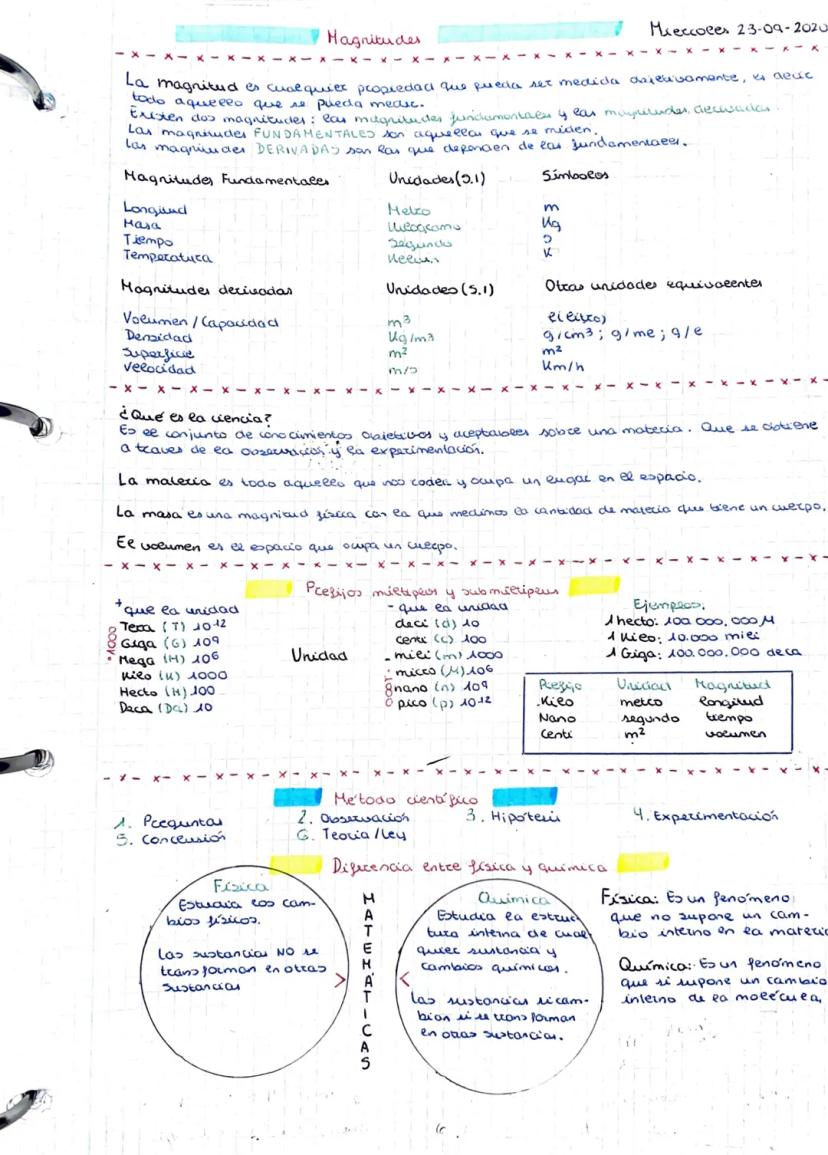 Magnitudes
Miercoles 23-09-2020
La magnitud es cualquier propiedad que pueda ser medida objetivamente, es decir
todo aquello que se pueda medir.
Existen dos magnitudes: las magnitudes fundamentales y las magnitudes derivadas.
Las magnitudes FUNDAMENTALES son aquellas que se miden.
Las magnitudes DERIVADAS son las que dependen de las fundamentales.
Magnitudes Fundamentales Unidades (S.I) Símbolos
Longitud Metro m
Masa Kilogramo Kg
Tiempo Segundo S
Temperatura Kelvin K
Magnitudes derivadas Unidades (S.I) Otras unidades equivalentes
Volumen / Capacidad m³ l (litro)
Densidad Kg/m³ g/cm³; g/ml; g/l
Superficie m² m²
Velocidad m/s Km/h
¿Qué es la ciencia?
Es el conjunto de conocimientos objetivos y aceptables sobre una materia. Que se obtiene
a traves de la observación y la experimentación.
La materia es todo aquello que nos rodea y ocupa un lugar en el espacio.
La masa es una magnitud física con la que medimos la cantidad de materia que tiene un cuerpo.
El volumen es el espacio que ocupa un cuerpo.
Prefijos múltiplos y submúltiplos
+ que la unidad
Tera (T) 10¹²
Giga (G) 10⁹
Mega (M) 10⁶
Kilo (K) 1000
Hecto (H) 100
Deca (Da) 10
1000
Unidad
- que la unidad
deci (d) 10
centi (c) 100
mili (m) 1000
micro (M) 10⁶
nano (n) 10⁹
pico (p) 10¹²
Ejemplos:
1 hecto: 100.000.000 M
1 Kilo: 10.000 mili
1 Giga: 100.000.000 deca
Prefijo Unidad Magnitud
Kilo metro longitud
Nano segundo tiempo
Centi m² volumen
Método científico
1. Preguntas 2. Observación 3. Hipótesis 4. Experimentación
5. Conclusión 6. Teoria / Ley
Diferencia entre física y química
Física
Estudia los cam-
bios físicos.
Las sustancias NO se
transforman en otras
sustancias
MATEMÁTICAS
Química
Estudia la estruc-
tura interna de cual-
quier sustancia y
cambios químicos.
Las sustancias si cam-
bian si se transforman
en otras sustancias.
Física: Es un fenómeno
que no supone un cam-
bio interno en la materia
Química: Es un fenómeno
que si supone un cambio
interno de la molécula,